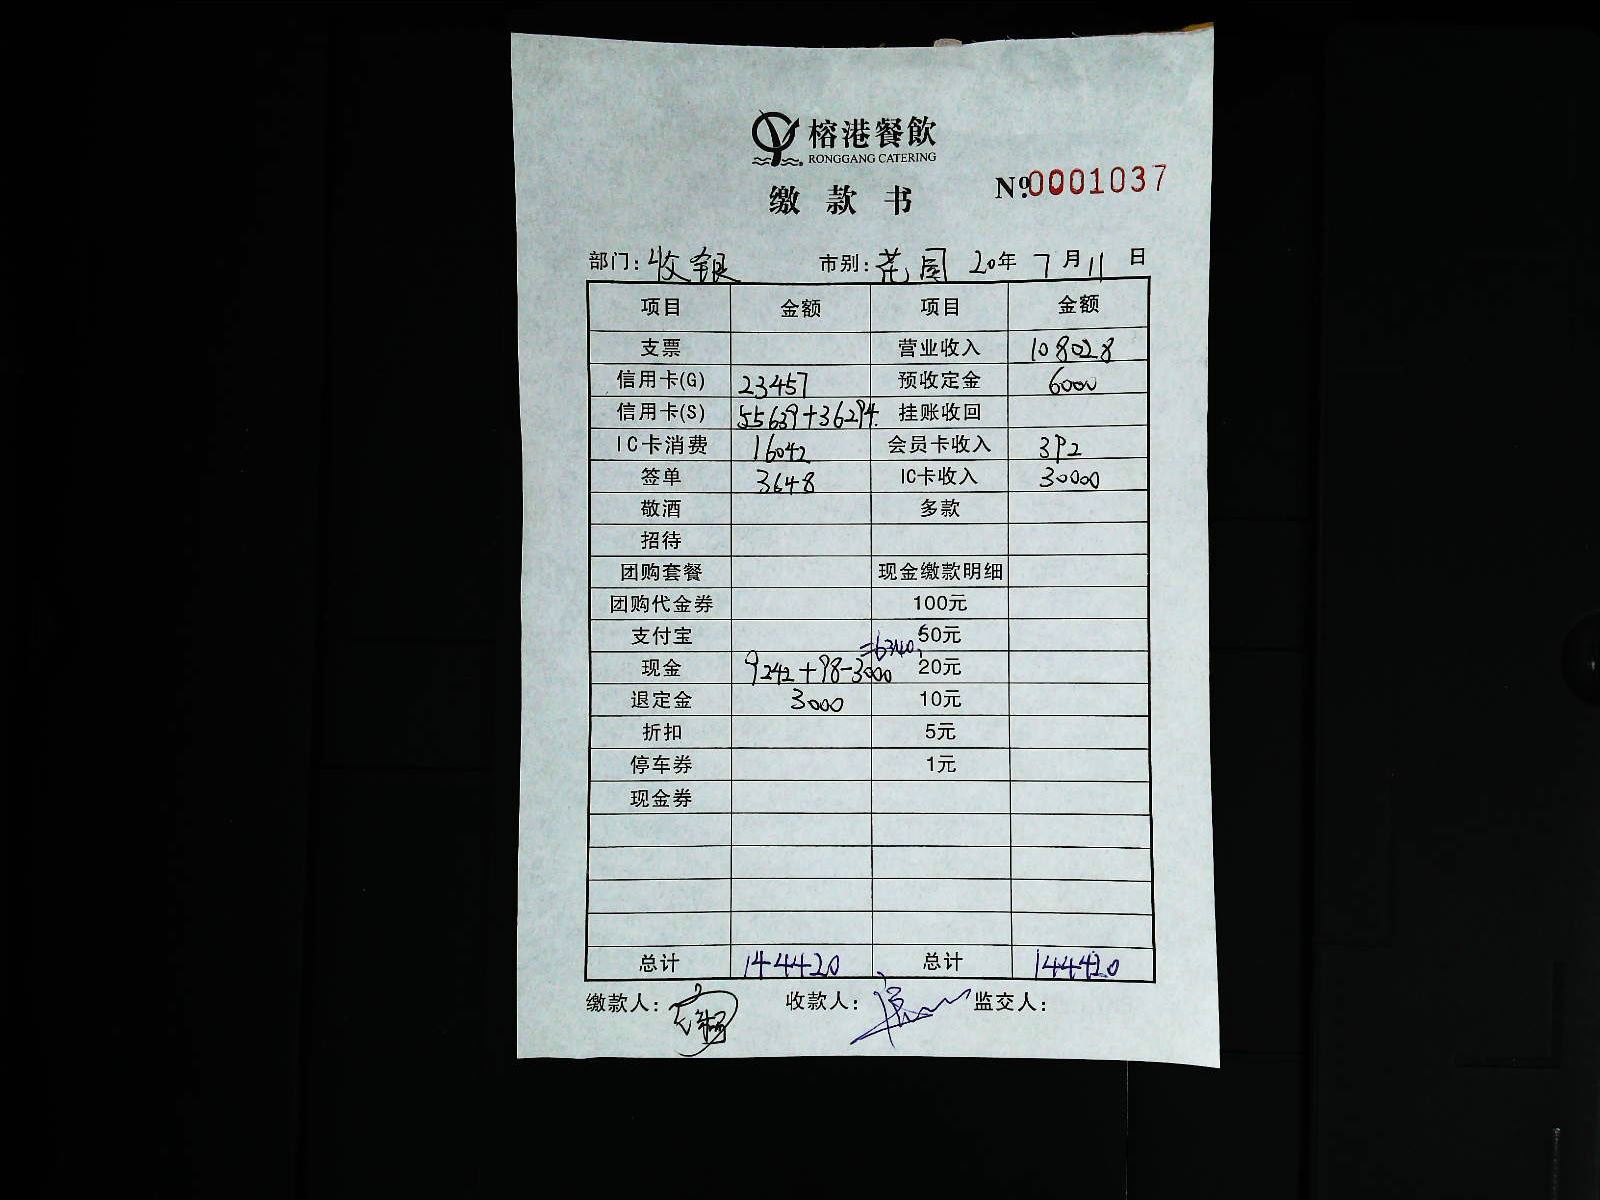 榕港餐飲
RONGGANG CATERING
缴款书
Nº 0001037
部门：收银 市别：花园 20年 7月11日
项目 金额 项目 金额
支票 营业收入 108028
信用卡(G) 23457 预收定金 6000
信用卡(S) 55639+36294 挂账收回
IC卡消费 16042 会员卡收入 392
签单 3648 IC卡收入 30000
敬酒 多款
招待
团购套餐 现金缴款明细
团购代金券 100元
支付宝 50元
现金 9242+98-3000 =6340 20元
退定金 3000 10元
折扣 5元
停车券 1元
现金券
总计 144420 总计 144420
缴款人： 收款人： 监交人：